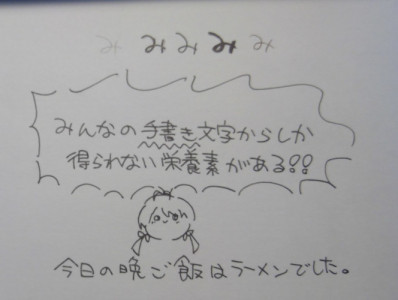 み み み み み
みんなの手書き文字からしか
得られない栄養素がある!!
今日の晩ご飯はラーメンでした。